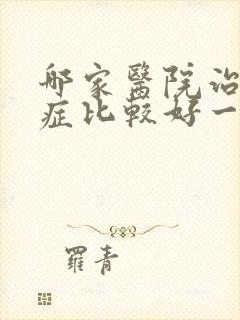 哪家醫院治
症比較好一
羅青